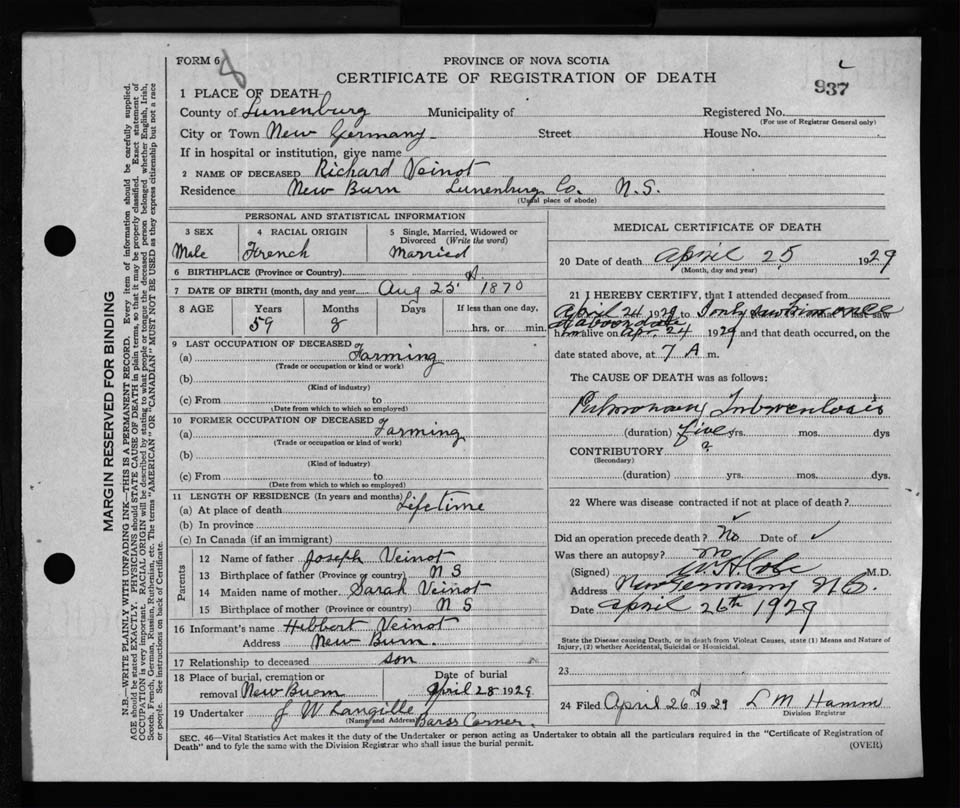 FORM 6
8
PROVINCE OF NOVA SCOTIA
CERTIFICATE OF REGISTRATION OF DEATH
937
1 PLACE OF DEATH
County of Lunenburg Municipality of Registered No.
(For use of Registrar General only)
City or Town New Germany Street House No.
If in hospital or institution, give name
2 NAME OF DECEASED Richard Veinot
Residence New Burn Lunenburg Co. N.S.
(Usual place of abode)
PERSONAL AND STATISTICAL INFORMATION
3 SEX 4 RACIAL ORIGIN 5 Single, Married, Widowed or Divorced (Write the word)
Male French Married
6 BIRTHPLACE (Province or Country)
7 DATE OF BIRTH (month, day and year) Aug 25 1870
8 AGE Years Months Days If less than one day,
59 8 hrs. or min.
9 LAST OCCUPATION OF DECEASED
(a) Farming
(Trade or occupation or kind or work)
(b)
(Kind of industry)
(c) From to
(Date from which to which so employed)
10 FORMER OCCUPATION OF DECEASED
(a) Farming
(Trade or occupation or kind of work)
(b)
(Kind of industry)
(c) From to
(Date from which to which so employed)
11 LENGTH OF RESIDENCE (In years and months)
(a) At place of death Lifetime
(b) In province
(c) In Canada (if an immigrant)
Parents
12 Name of father Joseph Veinot
13 Birthplace of father (Province or country) N S
14 Maiden name of mother Sarah Veinot
15 Birthplace of mother (Province or country) N S
16 Informant's name Hibbert Veinot
Address New Burn
17 Relationship to deceased son
18 Place of burial, cremation or removal New Burn
Date of burial April 28 1929
19 Undertaker J W Langille
(Name and Address) Barss Corner.
MEDICAL CERTIFICATE OF DEATH
20 Date of death April 25 1929
(Month, day and year)
21 I HEREBY CERTIFY, that I attended deceased from
April 24 1929 to Only saw him once last saw
on above date
him alive on Apr. 24 1929 and that death occurred, on the
date stated above, at 7 A m.
The CAUSE OF DEATH was as follows:
Pulmonary Tuberculosis
(duration) five yrs. mos. dys
CONTRIBUTORY ?
(Secondary)
(duration) yrs. mos. dys
22 Where was disease contracted if not at place of death?
Did an operation precede death? No Date of
Was there an autopsy? no
(Signed) M.D.
Address New Germany N.S.
Date April 26th 1929
State the Disease causing Death, or in death from Violent Causes, state (1) Means and Nature of
Injury, (2) whether Accidental, Suicidal or Homicidal.
23
24 Filed April 26 1929 L M Hamm
Division Registrar
SEC. 46—Vital Statistics Act makes it the duty of the Undertaker or person acting as Undertaker to obtain all the particulars required in the "Certificate of Registration of
Death" and to fyle the same with the Division Registrar who shall issue the burial permit.
(OVER)
MARGIN RESERVED FOR BINDING
N.B.—WRITE PLAINLY WITH UNFADING INK—THIS IS A PERMANENT RECORD. Every item of information should be carefully supplied.
AGE should be stated EXACTLY. PHYSICIANS should STATE CAUSE OF DEATH in plain terms, so that it may be properly classified. Exact statement of
OCCUPATION is very important. RACIAL ORIGIN will be described by stating to what people or tongue the deceased person belonged whether English, Irish,
Scotch, French, German, Russian, Ruthenian, etc. The terms "AMERICAN" OR "CANADIAN" MUST NOT BE USED as they express citizenship but not a race
or people. See instructions on back of Certificate.